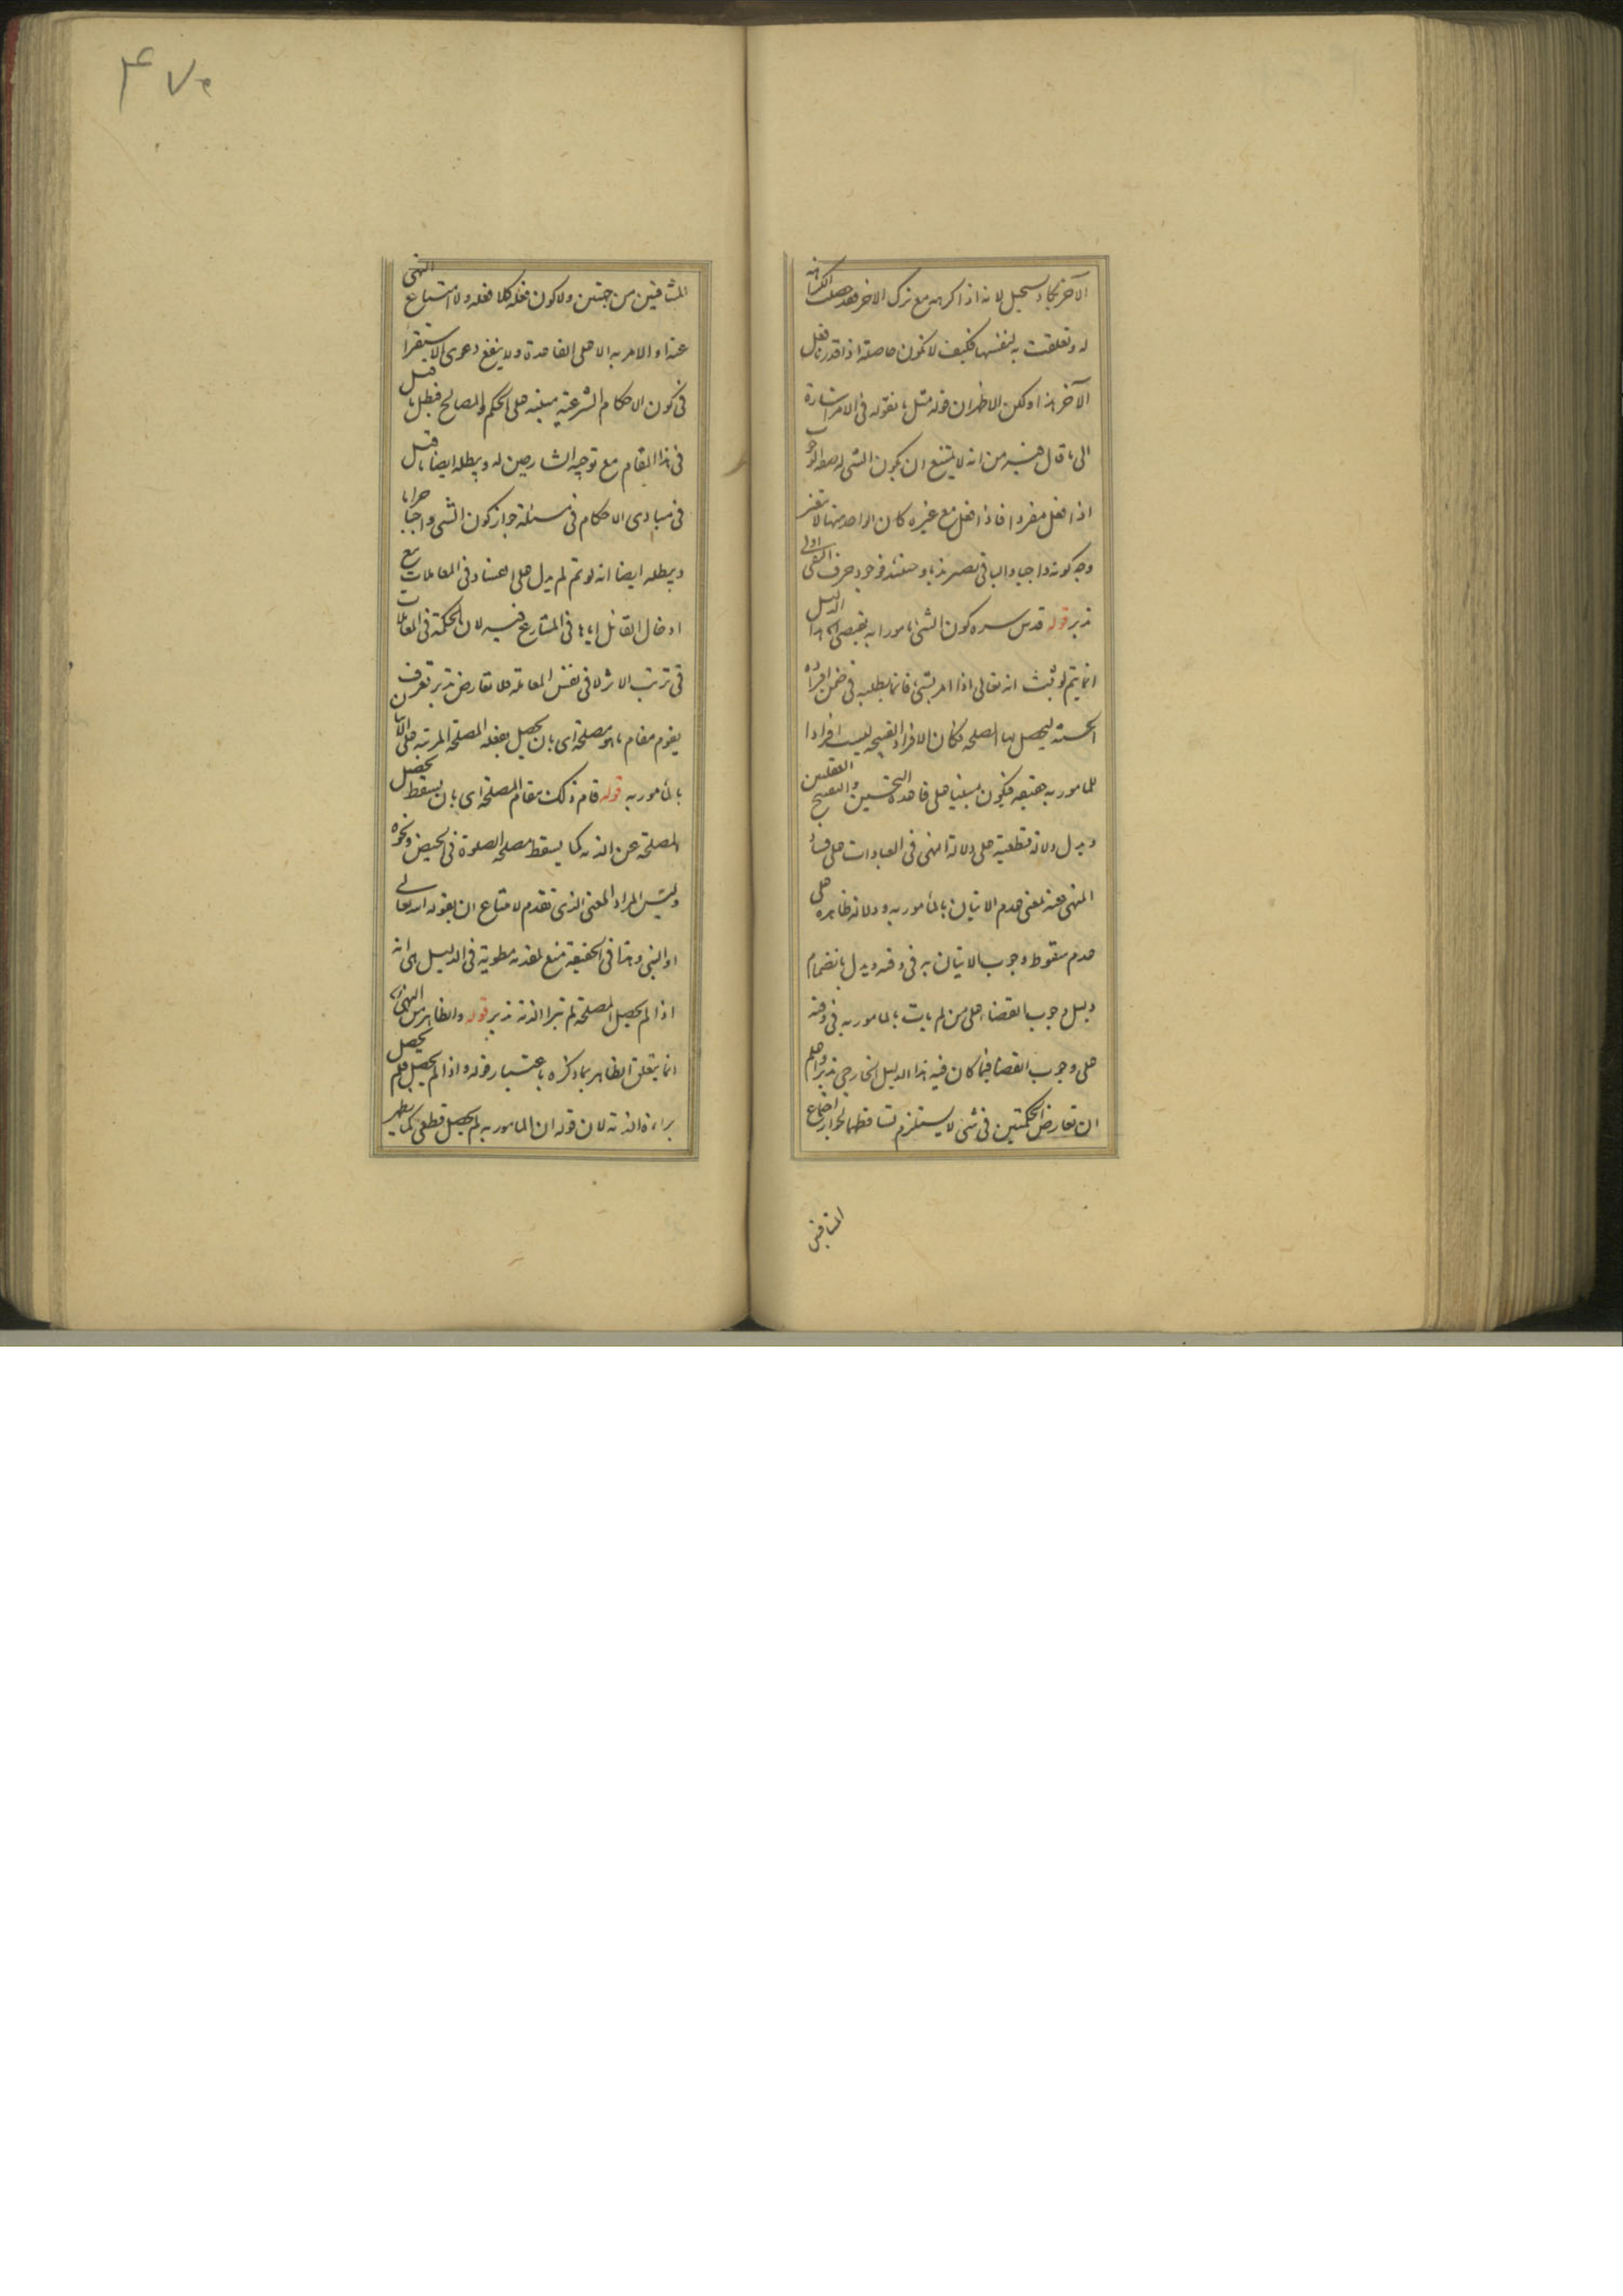 الآخر يكاد يستحيل لانه اذا كرهه مع ترك الاخر فقد حصلت الكراهة
له وتعلقت به لنفسها فكيف لا تكون حاصلة اذا قدرنا فعل
الآخر هذا ولكن الاظهر ان قوله مثل ما نقوله فى الامر اشارة
الى ما قال فيه من انه لا يمتنع ان يكون الشى له صفة الوجوب
اذا فعل مفردا فاذا فعل مع غيره كان الواحد منها لا بعينه
وجه كونه واجبا والباقى
تدبر قوله قدس سره كون الشى مامورا به يقتضى الخ هذا الدليل
انما يتم لو ثبت انه تعالى اذا امر بشى فانما يطلبه فى ضمن افراده
الحسنة ليحصل بها المصلحة فكان الافراد القبيحة ليست افرادا
للمامور به حقيقة فيكون مبنيا على قاعدة التحسين والتقبيح العقليين
ويدل دلالة قطعية على دلالة النهى فى العبادات على فساد
المنهى عنه لمعنى عدم الاتيان بالمأمور به ودلالة ظاهره على
عدم سقوط وجوب الاتيان به فى وقته ويدل بانضمام
دليل وجوب القضاء على من لم يات بالمامور به فى وقته
على وجوب القضا فيما كان فيه هذا الدليل الخارجى تدبر واعلم
ان تعارض الحكمتين فى شى لا يستلزم تساقطهما لجواز اجتماع
المتنافيين
۴۷۰
المتنافيين من جهتين ولا كون فعله كلا فعله ولا امتناع النهى
عنه او الامر به الا على القاعدة ولا ينفع دعوى الاستقرا
فى كون الاحكام الشرعية مبنية على الحكم والمصالح فبطل ما قيل
فى هذا المقام مع توجيه الشارحين له ويبطله ايضا ما قيل
فى مبادى الاحكام فى مسئلة جواز كون الشى واجبا حراما
ويبطله ايضا انه لو تم لم يدل على الفساد فى المعاملات مع
ادخال القائل اياها فى المتنازع فيه لان الحكمة فى المعاملات
فى ترتب الاثر لا فى نفس المعاملة فلا تعارض تدبر تعرف
يقوم مقام ما هو مصلحة اى بان يحصل بفعله المصلحة المرتبة على الاتيان
بالمأمور به قوله قام ذلك مقام المصلحة اى بان يسقط تحصيل
المصلحة عن الذمة كما يسقط مصلحة الصلوة فى الحيض ونحوه
وليس المراد المعنى الذى تقدم لامتناع ان يقوله الله تعالى
او النبى وهذا فى الحقيقة منع لمقدمة مطوية فى الدليل هى انه
اذا لم يحصل المصلحة لم تبرا الذمة تدبر قوله والظاهر من النهى
انما يتعلق الظاهر بما ذكره باعتبار قوله واذا لم يحصل فلم يحصل
براءة الذمة لان قوله ان المامور به لم يحصل قطعى كما يظهر